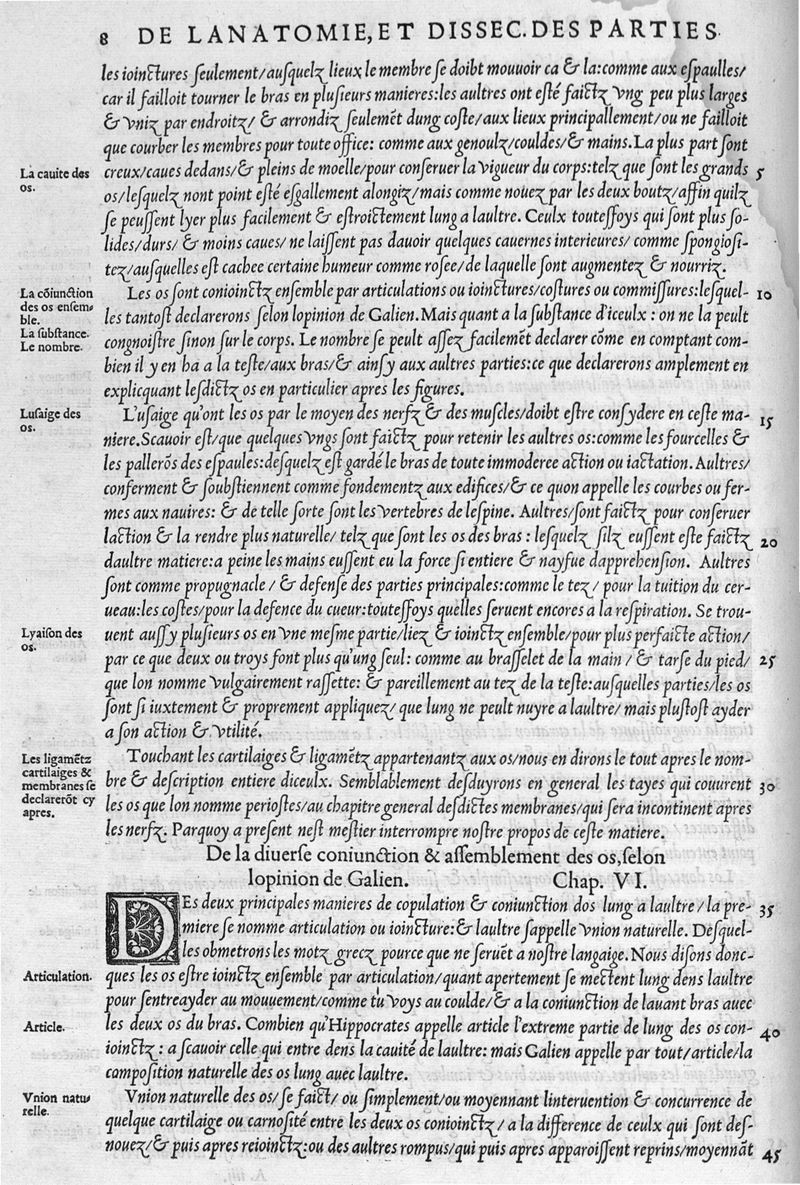 8 DE LANATOMIE, ET DISSEC. DES PARTIES
les ioinctures seulement/ausquelz lieux le membre se doibt mouuoir ca & la:comme aux espaulles/
car il failloit tourner le bras en plusieurs manieres:les aultres ont esté faictz vng peu plus larges
& vniz par endroitz/ & arrondiz seulemẽt dung coste/aux lieux principallement/ou ne failloit
que courber les membres pour toute office: comme aux genoulz/couldes/& mains. La plus part sont
La cauite des os.
creux/caues dedans/& pleins de moelle/pour conseruer la vigueur du corps:telz que sont les grands 5
os/lesquelz nont point esté esgallement alongiz/mais comme nouez par les deux boutz/affin quilz
se peussent lyer plus facilement & estroictement lung a laultre. Ceulx touteffoys qui sont plus so-
lides/durs/ & moins caues/ ne laissent pas dauoir quelques cauernes interieures/ comme spongiosi-
tez/ausquelles est cachee certaine humeur comme rosee/de laquelle sont augmentez & nourriz.
La cõiunction des os ensemble.
Les os sont conioinctz ensemble par articulations ou ioinctures/costures ou commissures:lesquel- 10
les tantost declarerons selon lopinion de Galien. Mais quant a la substance d'iceulx : on ne la peult
La substance.
Le nombre.
congnoistre sinon sur le corps. Le nombre se peult assez facilemẽt declarer cõme en comptant com-
bien il y en ha a la teste/aux bras/& ainsy aux aultres parties:ce que declarerons amplement en
explicquant lesdictz os en particulier apres les figures.
Lusaige des os.
L'usaige qu'ont les os par le moyen des nerfz & des muscles/doibt estre consydere en ceste ma- 15
niere. Scauoir est/que quelques vngs sont faictz pour retenir les aultres os:comme les fourcelles &
les pallerõs des espaules:desquelz est gardé le bras de toute immoderee action ou iactation. Aultres/
conferment & soubstiennent comme fondementz aux edifices/& ce quon appelle les courbes ou fer-
mes aux nauires: & de telle sorte sont les vertebres de lespine. Aultres/sont faictz pour conseruer
laction & la rendre plus naturelle/ telz que sont les os des bras : lesquelz silz eussent este faictz 20
daultre matiere:a peine les mains eussent eu la force si entiere & nayfue dapprehension. Aultres
sont comme propugnacle / & defense des parties principales:comme le tez/ pour la tuition du cer-
ueau:les costes/pour la defence du cueur:touteffoys quelles seruent encores a la respiration. Se trou-
Lyaison des os.
uent aussy plusieurs os en vne mesme partie/liez & ioinctz ensemble/pour plus perfaicte action/
par ce que deux ou troys font plus qu'ung seul: comme au brasselet de la main / & tarse du pied/ 25
que lon nomme vulgairement rassette: & pareillement au tez de la teste:ausquelles parties/les os
sont si iuxtement & proprement appliquez/ que lung ne peult nuyre a laultre/ mais plustost ayder
a son action & vtilité.
Les ligamẽtz cartilaiges & membranes se declarerõt cy apres.
Touchant les cartilaiges & ligamẽtz appartenantz aux os/nous en dirons le tout apres le nom-
bre & description entiere diceulx. Semblablement desduyrons en general les tayes qui couurent 30
les os que lon nomme periostes/au chapitre general desdictes membranes/qui sera incontinent apres
les nerfz. Parquoy a present nest mestier interrompre nostre propos de ceste matiere.
De la diuerse coniunction & assemblement des os, selon
lopinion de Galien. Chap. VI.
DEs deux principales manieres de copulation & coniunction dos lung a laultre / la pre- 35
miere se nomme articulation ou ioincture:& laultre sappelle vnion naturelle. Desquel-
les obmetrons les motz grecz pource que ne seruẽt a nostre langaige. Nous disons donc-
Articulation.
ques les os estre ioinctz ensemble par articulation/quant apertement se mectent lung dens laultre
pour sentreayder au mouuement/comme tu voys au coulde/& a la coniunction de lauant bras auec
Article.
les deux os du bras. Combien qu'Hippocrates appelle article l'extreme partie de lung des os con- 40
ioinctz : a scauoir celle qui entre dens la cauité de laultre: mais Galien appelle par tout/article/la
composition naturelle des os lung auec laultre.
Vnion naturelle.
Vnion naturelle des os/ se faict/ ou simplement/ou moyennant linteruention & concurrence de
quelque cartilaige ou carnosité entre les deux os conioinctz/ a la difference de ceulx qui sont des-
nouez/& puis apres reioinctz:ou des aultres rompus/qui puis apres apparoissent reprins/moyennãt 45